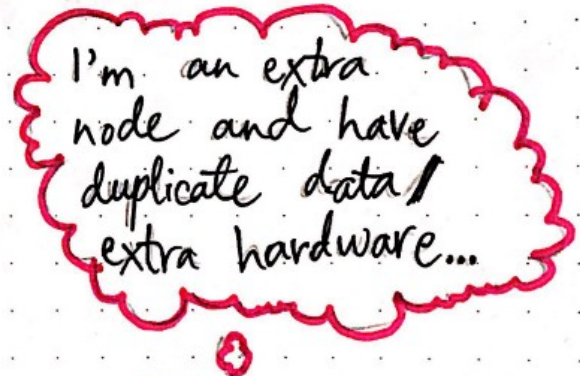 I'm an extra
node and have
duplicate data/
extra hardware...